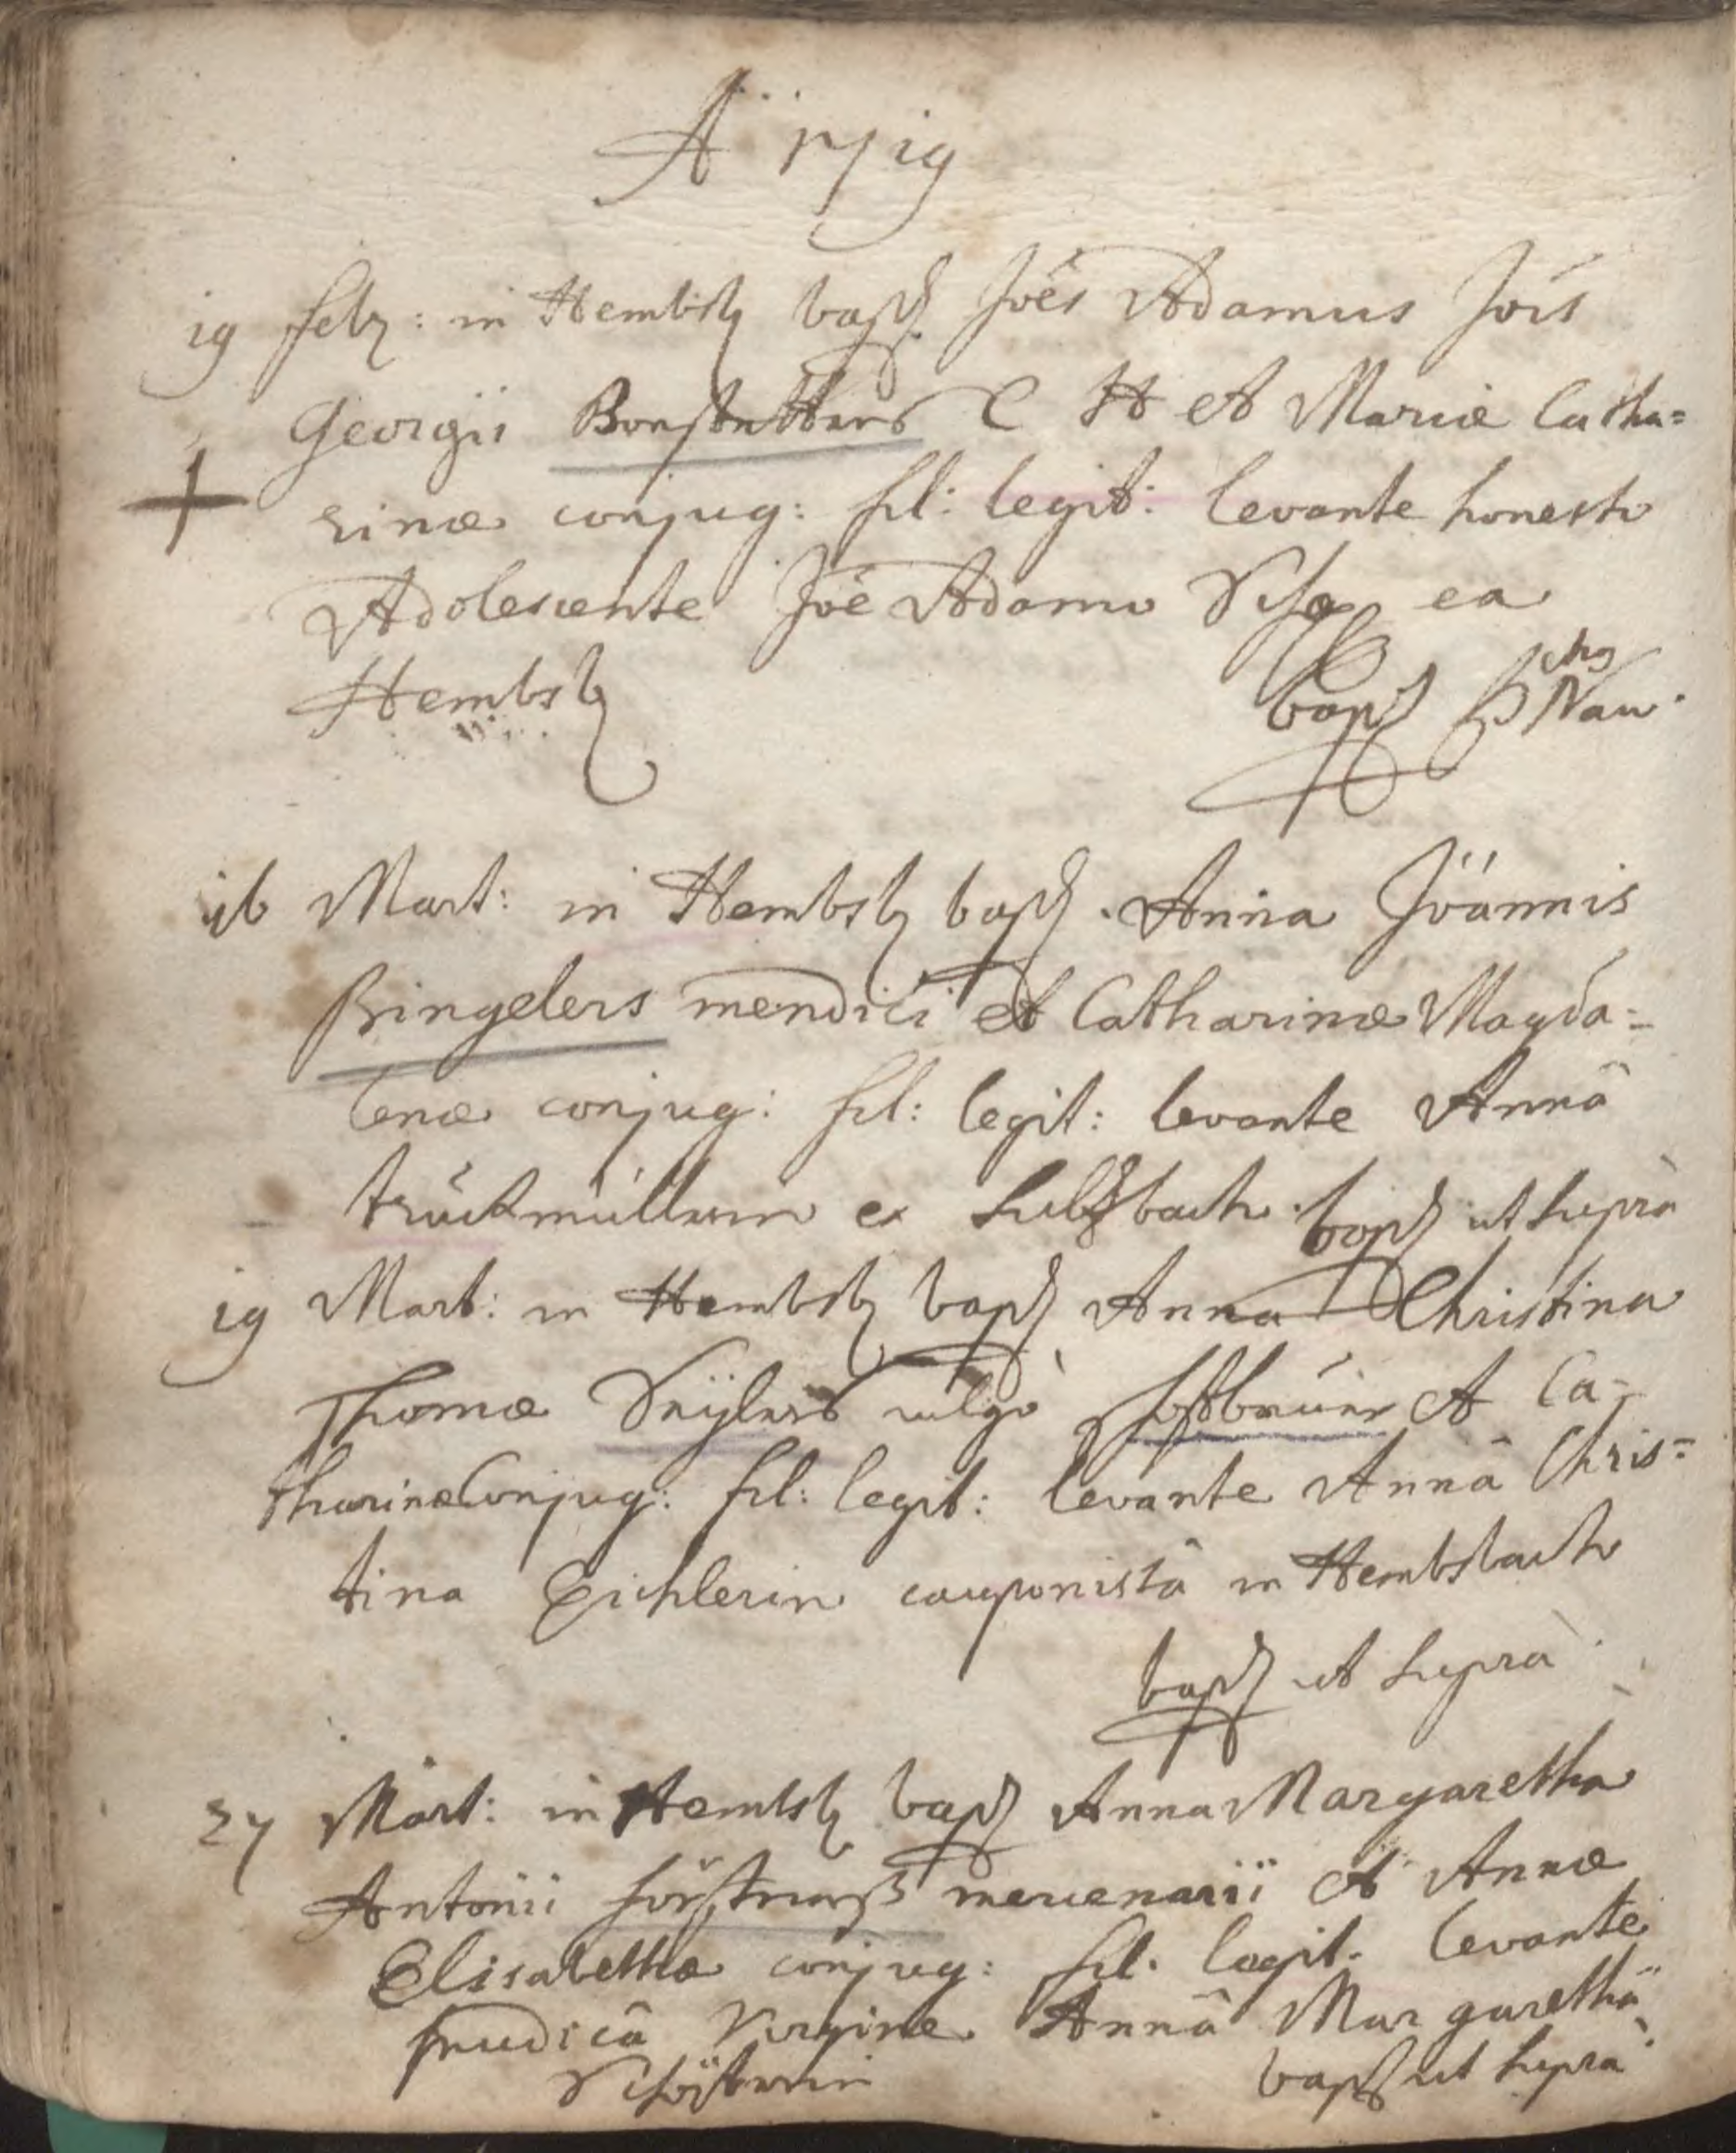 A 1719
19 febr: in Hembsb bapt Joes Adamus Jois
Georgii Bonstetters C H et Mariæ Catha=
rinæ conjug: fil: legit: levante honesto
Adolescente Joe Adamo ea
Hembsb bapt P Nau
16 Mart: in Hembsb bapt Anna Joannis
Ringelers mendici et Catharinæ Magda=
lenæ conjug: fil: legit: levante Annâ
trückmüllerin ex Sulzbach bapt ut suprà
19 Mart: in Hembsb bapt Anna Christina
Thomæ Seylers vulgò et Ca=
tharinæ Conjug: fil: legit: levante Annâ Chris=
tina Eichlerin cauponistâ in Hembsbach
bapt ut suprà
27 Mart: in Hembsb bapt Anna Margaretha
Antonii mercenarii et Annæ
Elisabethæ conjug: fil: legit: levante
pudicâ Virgine Annâ Margarethâ
bapt ut suprà